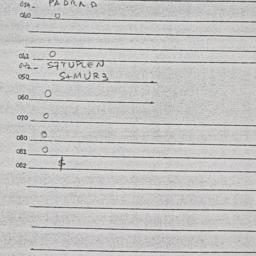 039- PADRND
040 0
041 0
042- S7TUPLEN
050 S+MUR3
060 0
070 0
080 0
081 0
082 $